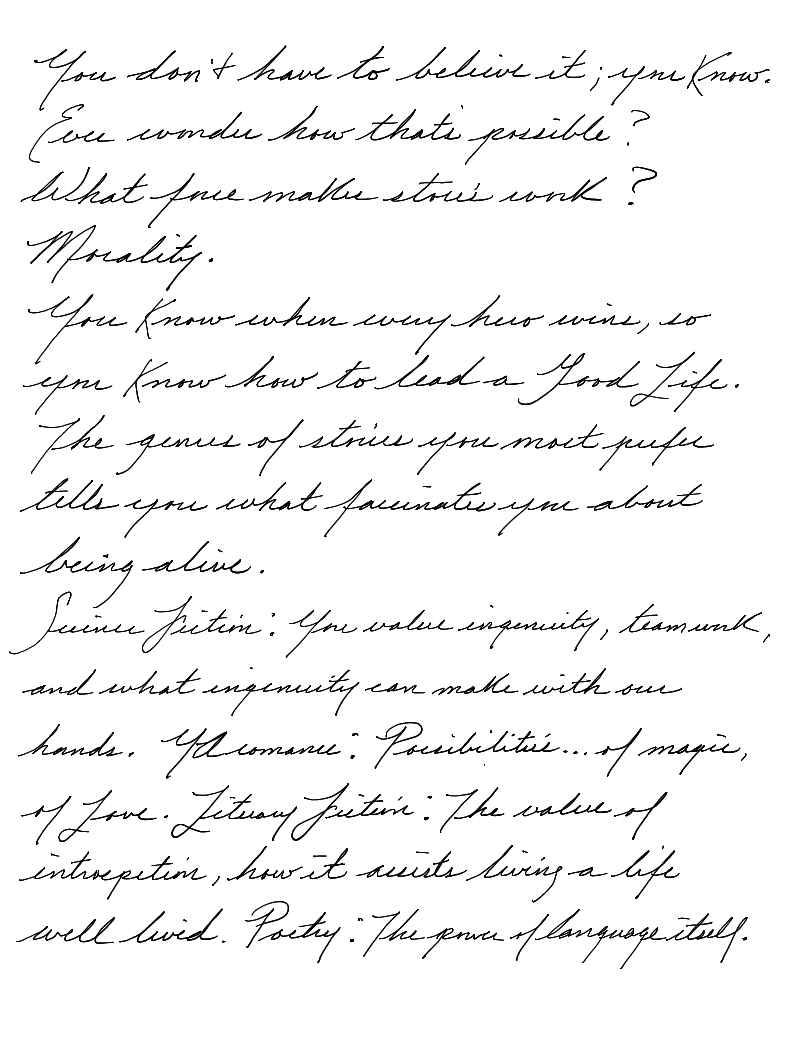 You don't have to believe it; you Know.
Ever wonder how that's possible?
What force makes stories work?
Morality.
You Know when every hero wins, so
you Know how to lead a Good Life.
The genres of stories you most prefer
tells you what fascinates you about
being alive.
Science Fiction: You value ingenuity, teamwork,
and what ingenuity can make with our
hands. YA romance: Possibilities... of magic,
of Love. Literary Fiction: The value of
introspection, how it assists living a life
well lived. Poetry: The power of language itself.